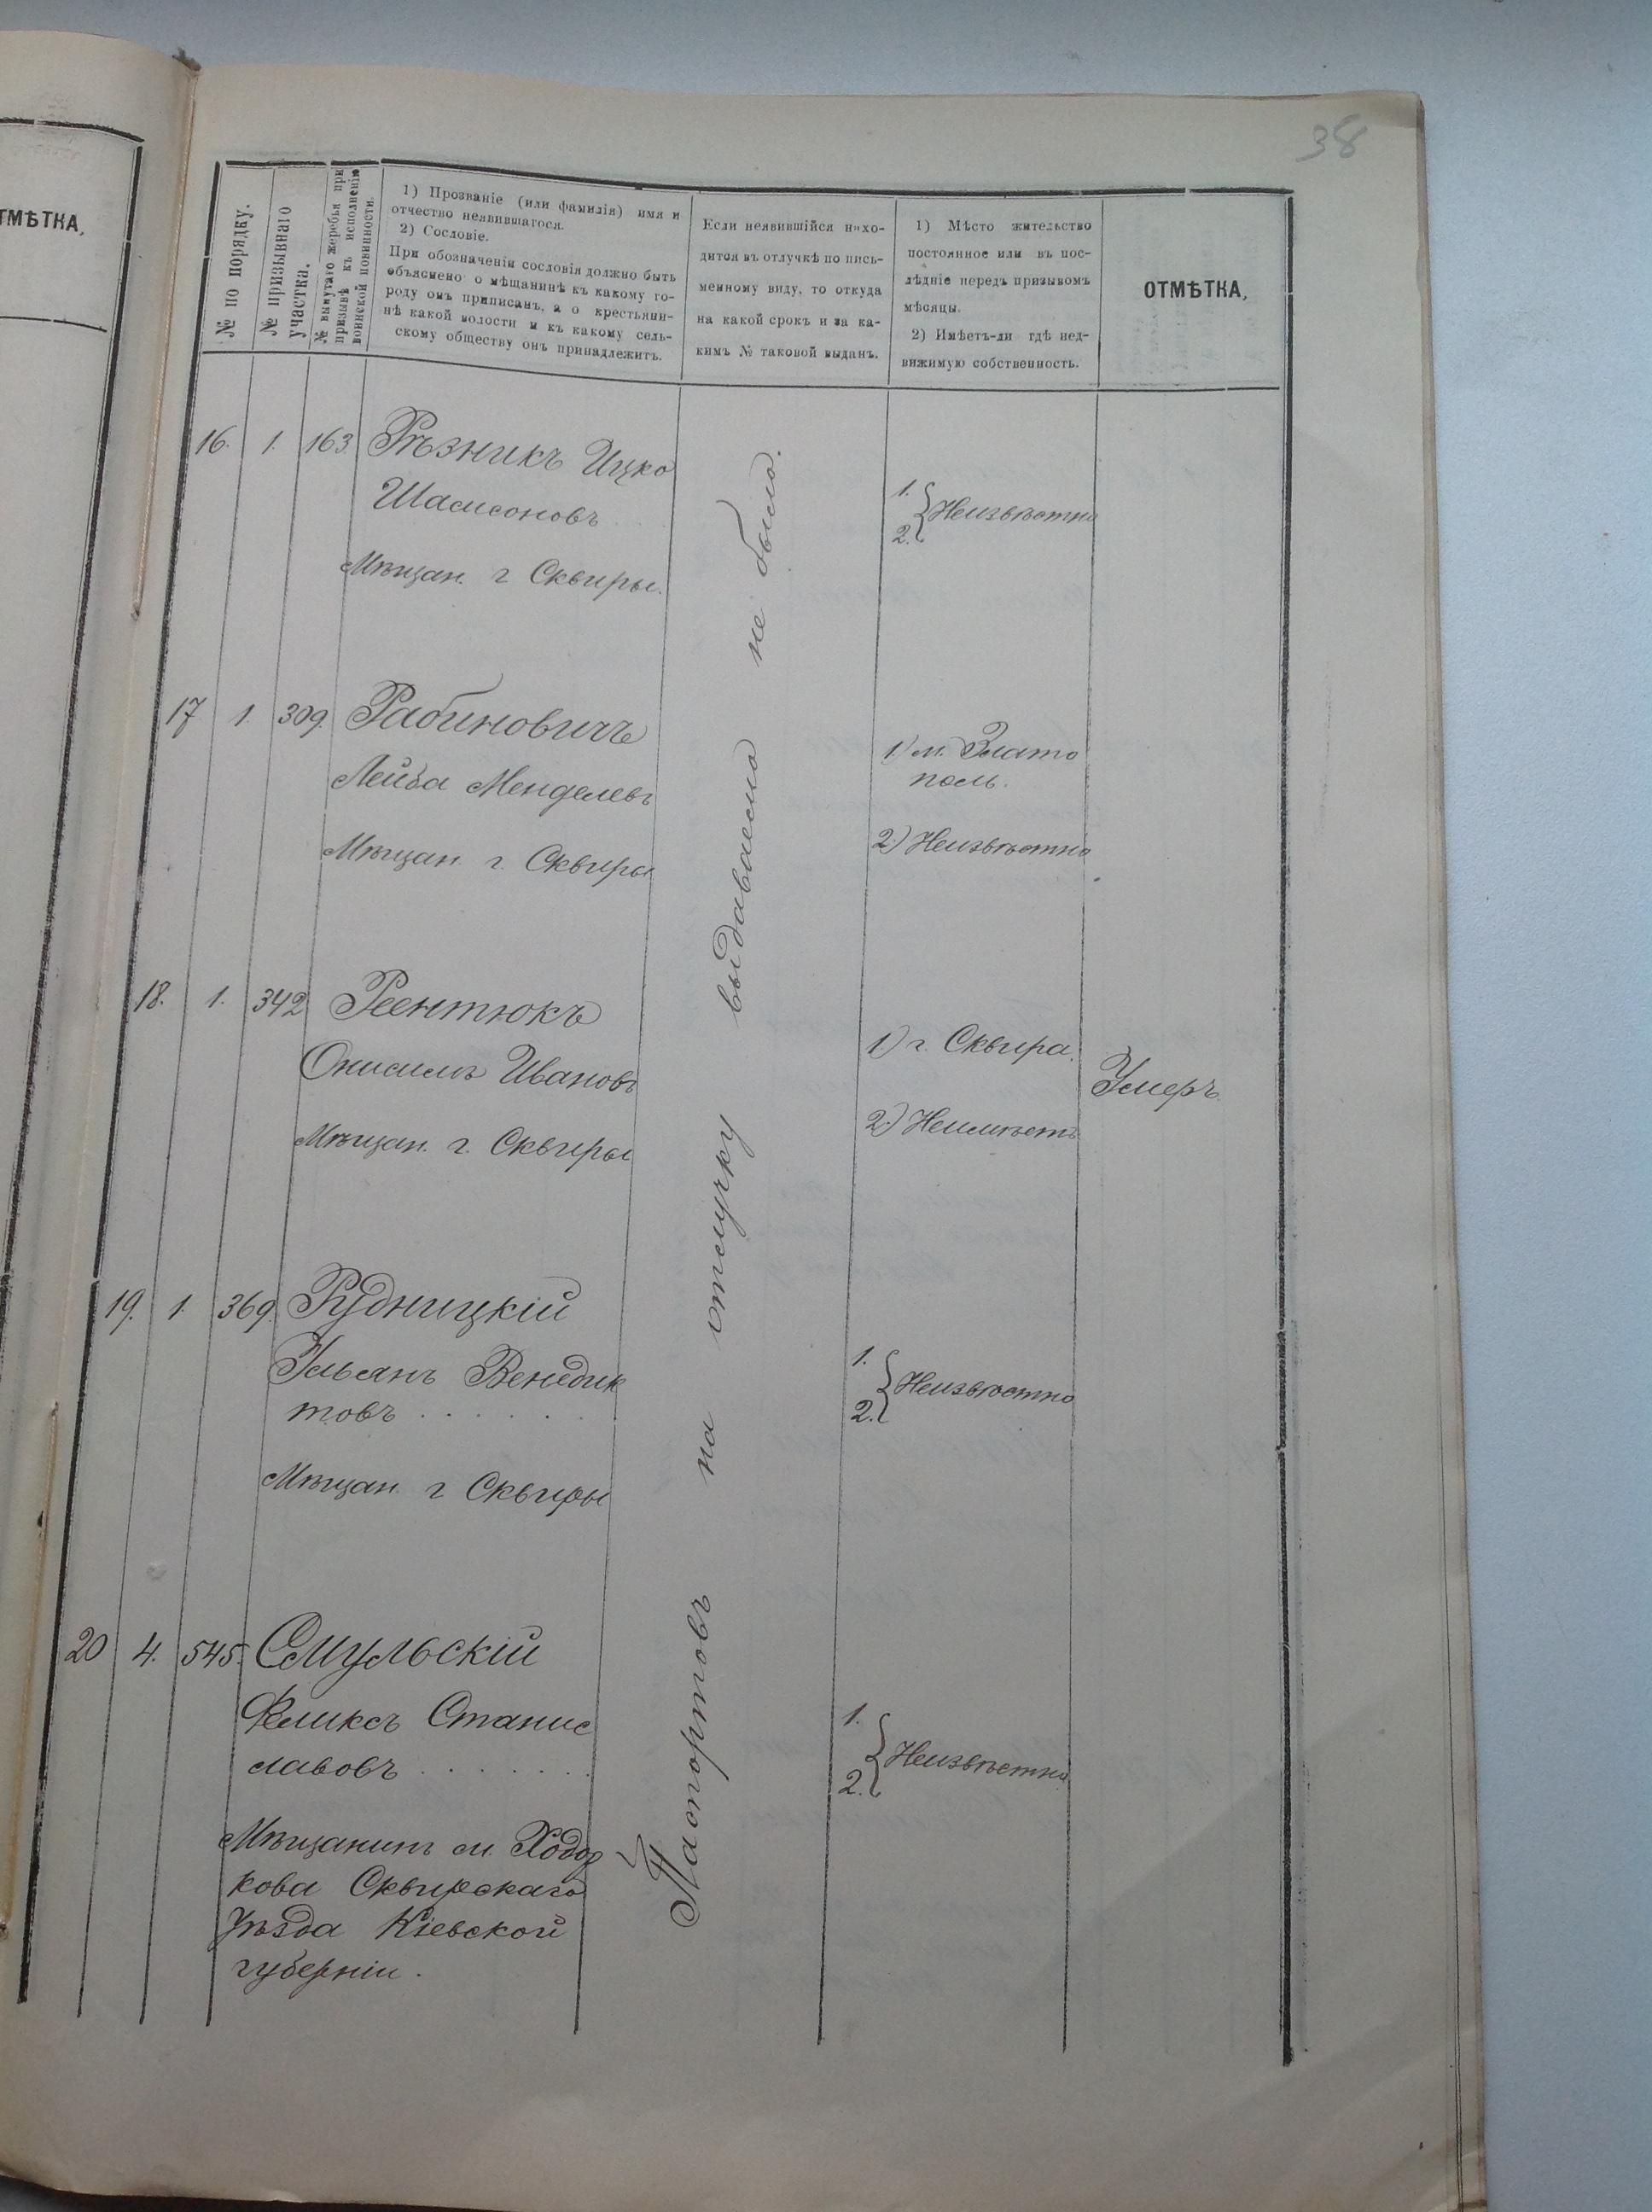 38
ТМѢТКА,
№ по порядку.
№ призывнаго
участка.
№ вынутаго жеребья при
призывѣ къ исполненію
воинской повинности.
1) Прозваніе (или фамилія) имя и
отчество неявившагося.
2) Сословіе.
При обозначеніи сословія должно быть
объяснено о мѣщанинѣ къ какому го-
роду онъ приписанъ, а о крестьяни-
нѣ какой волости и къ какому сель-
скому обществу онъ принадлежитъ.
Если неявившійся нахо-
дится въ отлучкѣ по пись-
менному виду, то откуда
на какой срокъ и за ка-
кимъ № таковой выданъ.
1) Мѣсто жительство
постоянное или въ пос-
лѣдніе передъ призывомъ
мѣсяцы.
2) Имѣетъ-ли гдѣ нед-
вижимую собственность.
ОТМѢТКА,
16. 1. 163. Рѣзникъ Ицко
Шамсоновъ
Мѣщан. г Сквиры.
1.
2. Неизвѣстно
17 1. 309. Рабиновичъ
Лейба Менделевъ
Мѣщан. г. Сквиры
1) м. Злато
поль.
2) Неизвѣстно
18. 1. 342 Реентюкъ
Онисимъ Ивановъ
Мѣщан. г. Сквиры
1) г. Сквира.
2) Неимѣетъ
Умеръ.
19. 1. 369. Рудницкій
Ульянъ Венедик
товъ . . . . . .
Мѣщан. г Сквиры
1.
2. Неизвѣстно
20 4. 545. Смульскій
Феликсъ Станис
лавовъ . . . . . . .
Мѣщанинъ м. Ходор
кова Сквирскаго
Уѣзда Кіевской
губерніи.
1.
2. Неизвѣстно
Паспортовъ на отлучку выдаваемо не было.